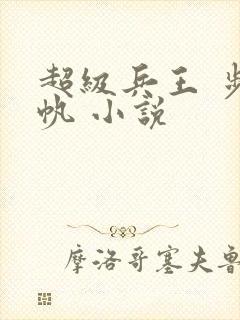 超級兵王 步
帆 小說
摩洛哥塞夫魯